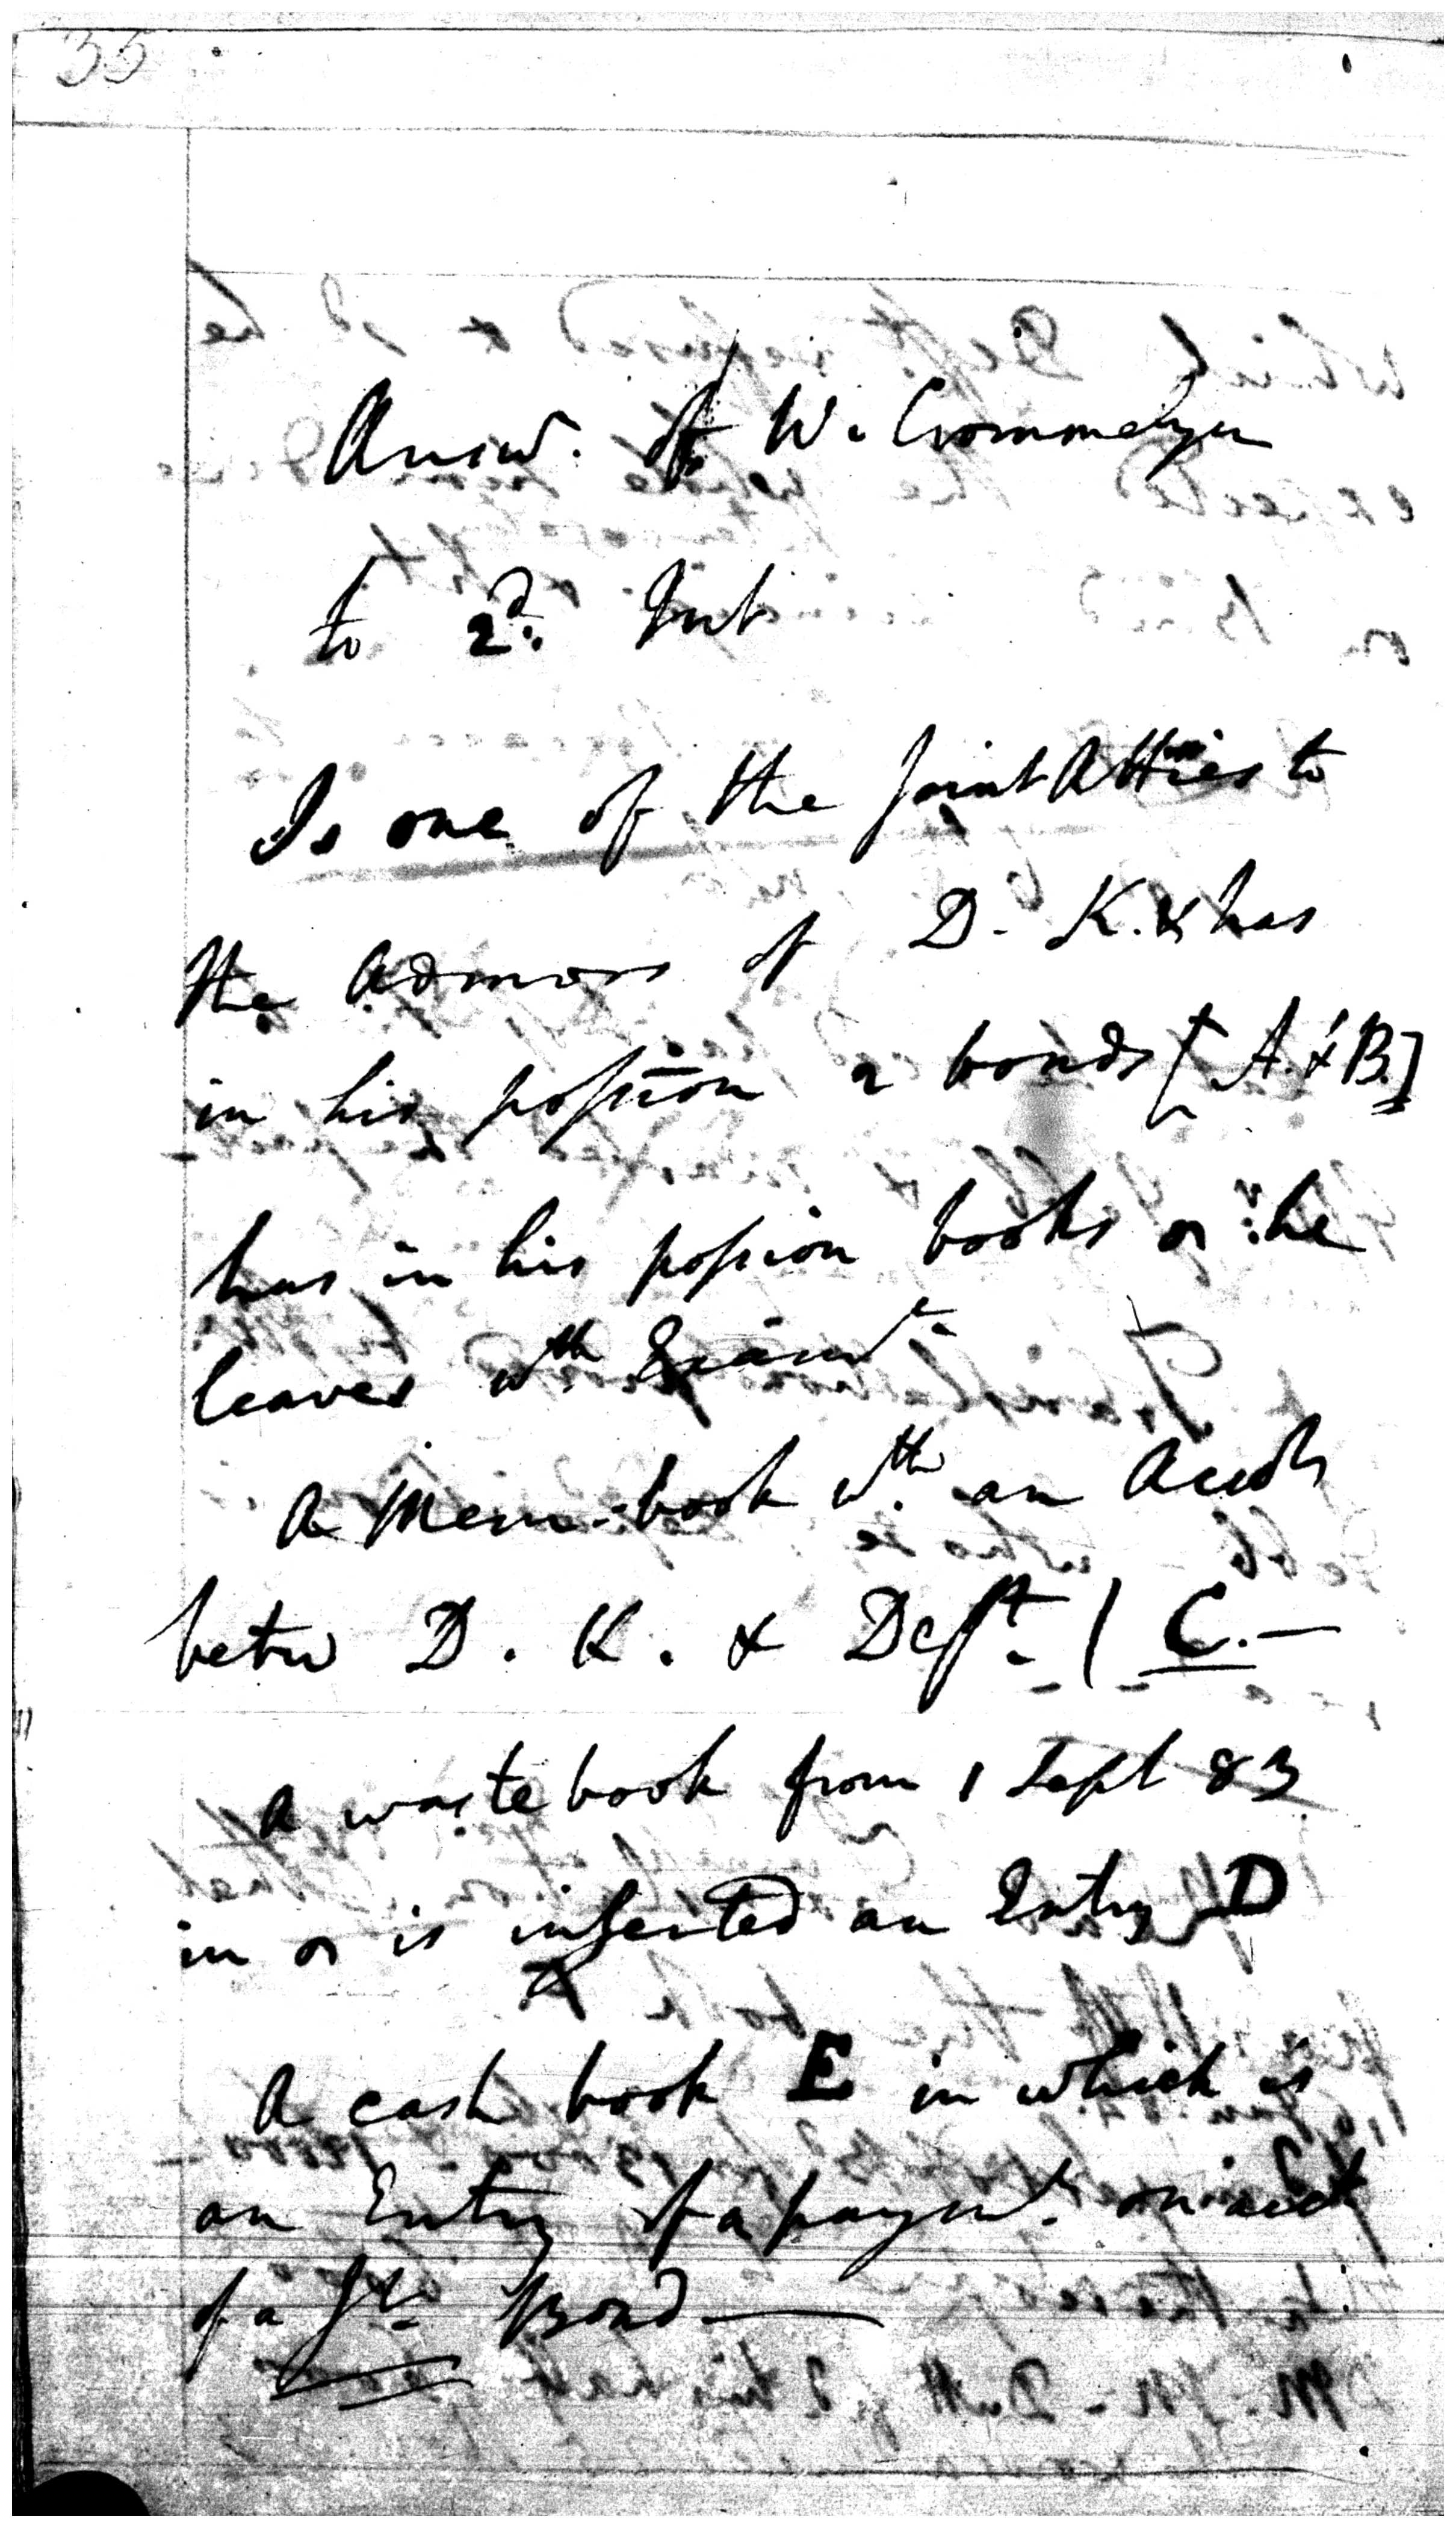 35
Answ. of W. Crommelyn
to 2d. Int
Is one of the joint Atties to
the admors of D. K. & has
in his possion 2 bonds [A. & B.]
has in his possion books wh. he
leaves wth Examr
A Mem-book wth an Acct
betw D. K. & Deft. | C. —
A waste book from 1 Sept 83
in wh is inserted an Entry D
A cash book E in which is
an Entry of a paymt. on acct
of a Jt. Bond —